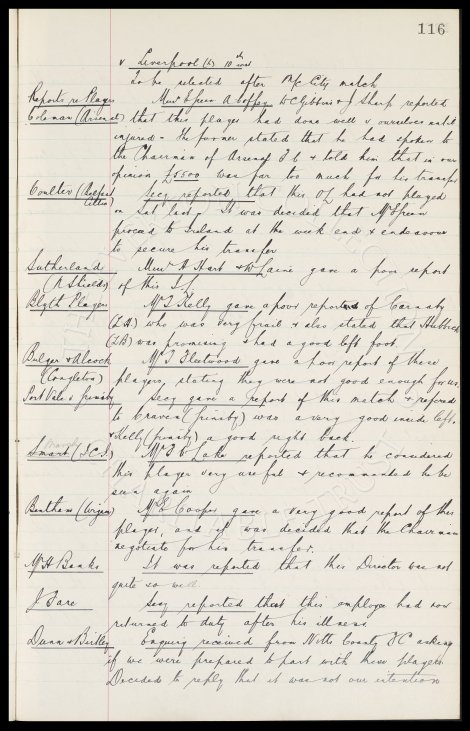 116
v Liverpool (h) 10th inst
To be selected after M/c City match
Reports re Players Messrs E Green A Coffey W C Gibbins & J Sharp reported
Coleman (Arsenal) that this player had done well v ourselves until
injured - the former stated that he had spoken to
the Chairman of Arsenal F C & told him that in our
opinion £5500 was far too much for his transfer
Coulter (Belfast Celtic) Secy reported that this OL had not played
on Sat last. It was decided that Mr Green
proceed to Ireland at the week end & endeavour
to secure his transfer
Sutherland Messrs A Hart & W Laine gave a poor report
(N Shields) of this I.L
Blyth Players Mr T Kelly gave a poor report of Carnaby
(LH) who was very frail & also stated that
(LB) was promising & had a good left foot.
Bolger & Alcock Mr J Fleetwood gave a poor report of these
(Congleton) players, stating they were not good enough for us.
Port Vale v Grimsby Secy gave a report of this match & referred
to Craven (Grimsby) was a very good inside left,
& Kelly (Grimsby) a good right back.
Smart (SCS) Mr F C Lake reported that he considered
this player very useful & recommended he be
seen again
Bentham (Wigan) Mr E Cooper gave a very good report of this
player, and it was decided that the Chairman
negotiate for his transfer.
Mr H Banks It was reported that this Director was not
quite so well.
J Bare Secy reported that this employee had now
returned to duty after his illness
Dunn & Birtley Enquiry received from Notts County F C asking
if we were prepared to part with these players
Decided to reply that it was not our intention